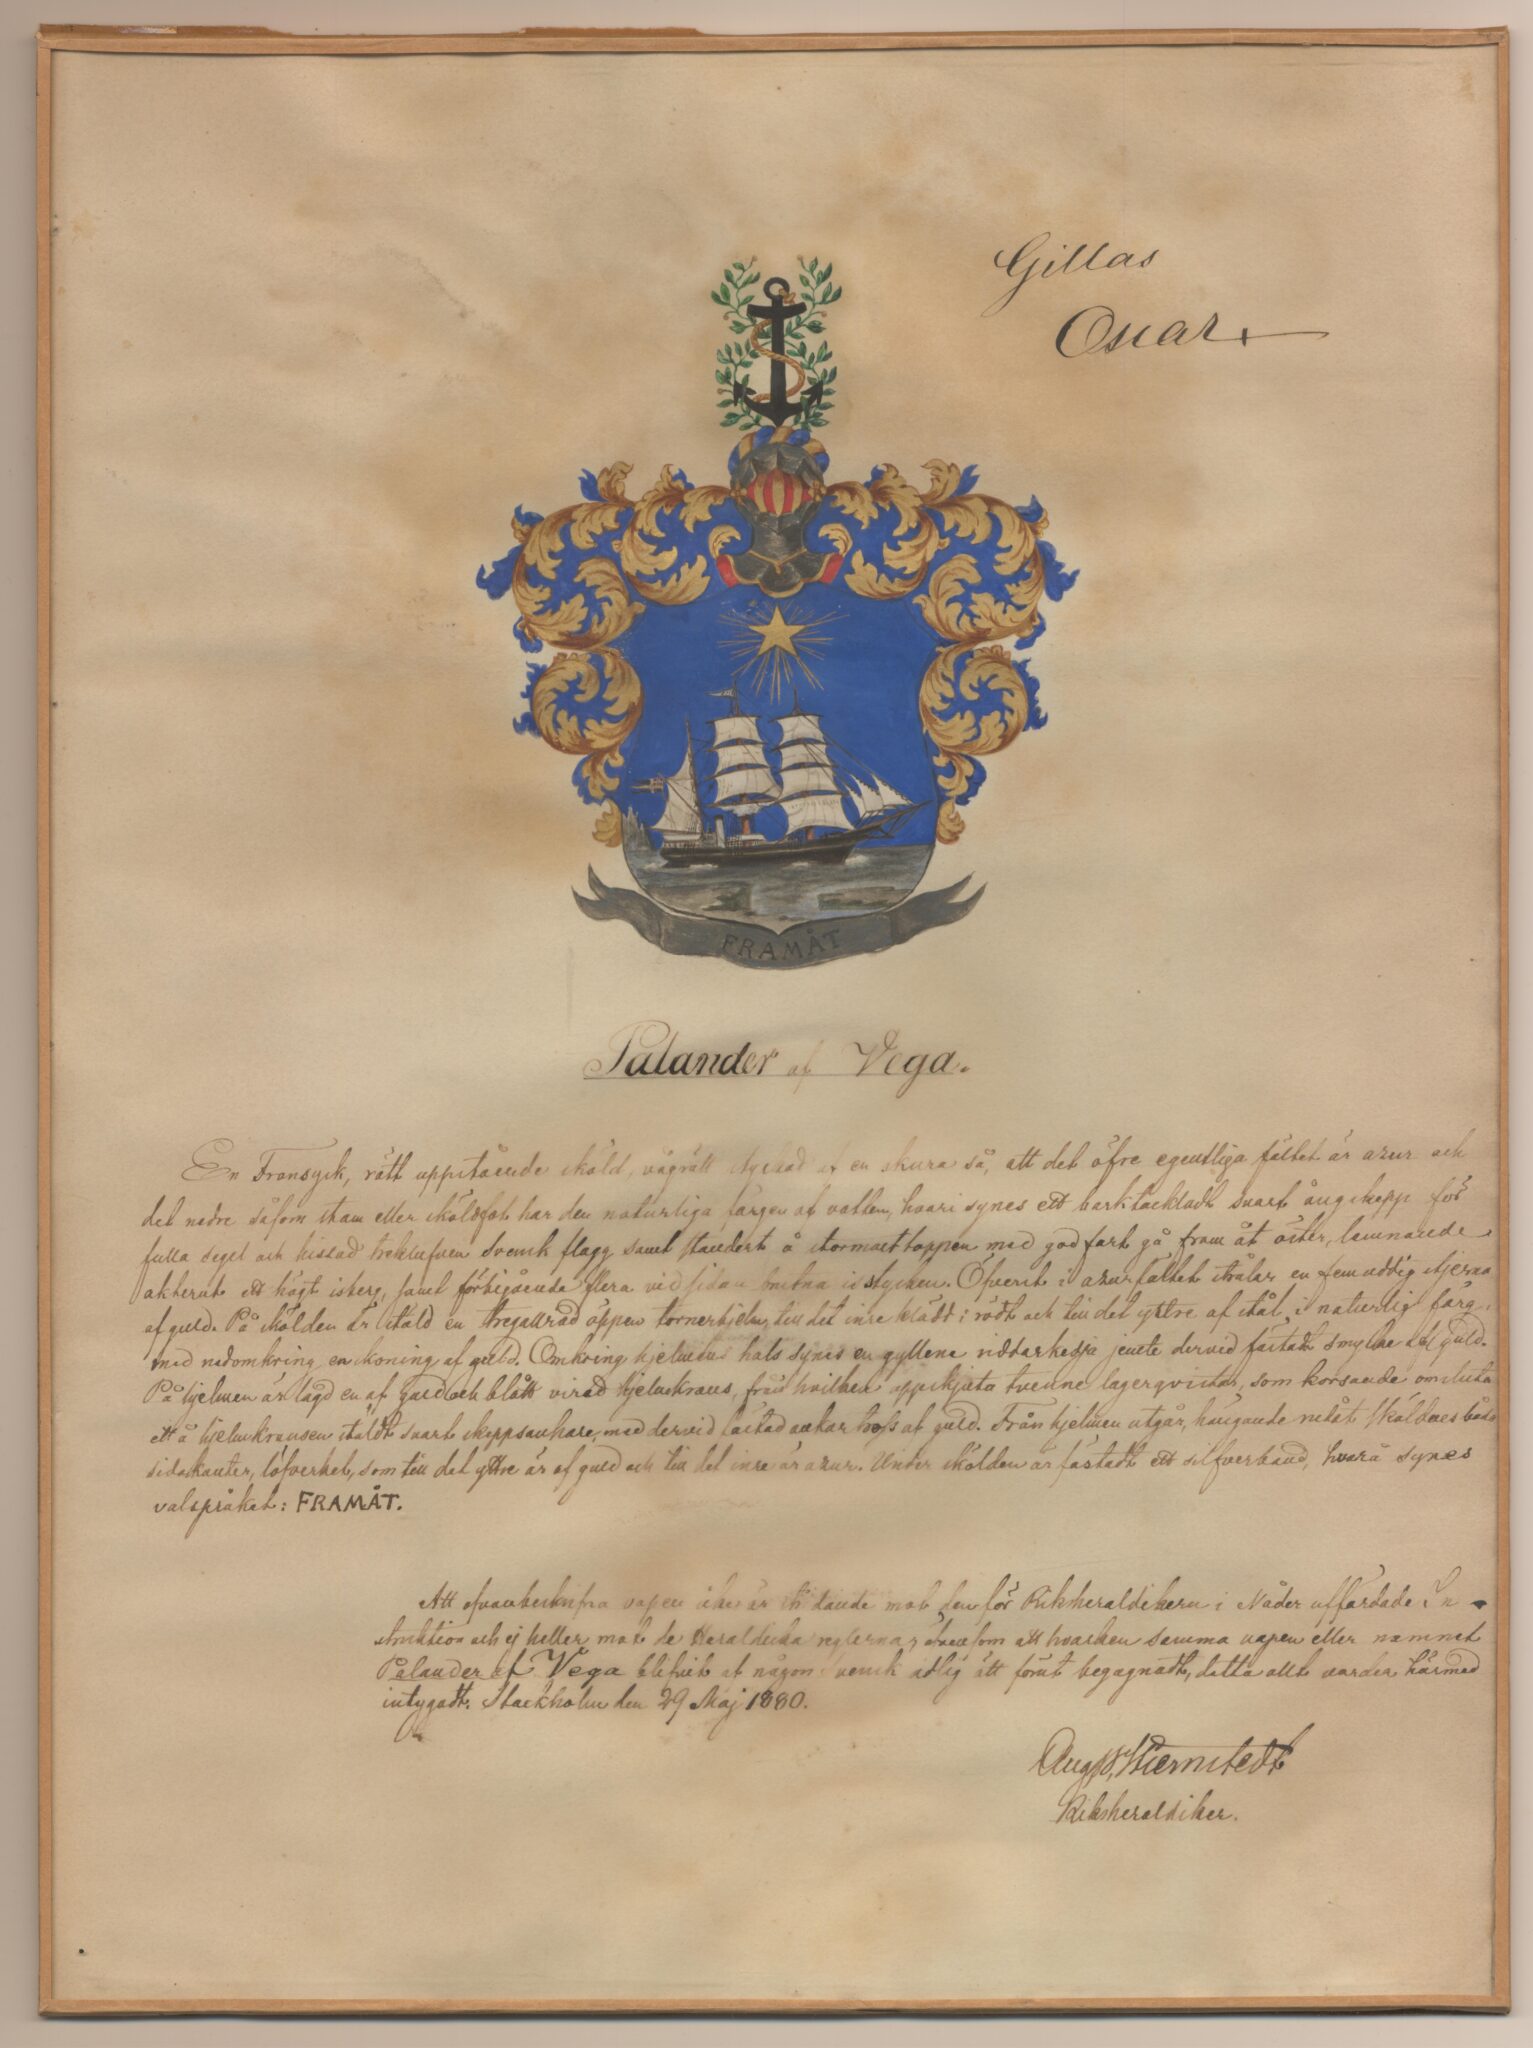 Gillas
Oscar
FRAMÅT
Palander af Vega.
En Fransysk, rätt uppstående sköld, vågrätt styckad af en skura så, att det öfre egentliga fältet är azur och
det nedre såsom stam eller sköldfot har den naturliga färgen af vatten, hvari synes ett barktackladt svart ångskepp för
fulla segel och hissad treklufven Svensk flagg samt standert å stormasttoppen med god fart gå fram åt öster, lemnande
akterut ett högt isberg, samt förbigående flera vid sidan brutna isstycken. Öfverst i azurfältet strålar en femuddig stjerna
af guld. På skölden är stäld en tregallrad öppen tornerhjelm, till det inre klädt i rödt och till det yttre af stål, i naturlig färg,
med nedomkring en skoning af guld. Omkring hjelmens hals synes en gyllene riddarkedja jemte dervid fästadt smycke af guld.
På hjelmen är lagd en af guld och blått virad hjelmkrans, från hvilken uppskjuta tvenne lagerqvistar, som korsande omsluta
ett å hjelmkransen stäldt svart skeppsankare, med dervid fästad ankartross af guld. Från hjelmen utgår, hängande nedåt Sköldens båda
sidokanter, löfverket, som till det yttre är af guld och till det inre är azur. Under skölden är fästadt ett silfverband, hvarå synes
valspråket: FRAMÅT.
Att ofvanbeskrifna vapen icke är stridande mot den för Riksheraldikern i Nåder utfärdade In-
struktion och ej heller mot de Heraldiska reglerna, äfvensom att hvarken samma vapen eller namnet
Palander af Vega blifvit af någon Svensk adlig ätt förut begagnadt, detta allt varder härmed
intygadt. Stockholm den 29 Maj 1880.
Aug. W. Stiernstedt
Riksheraldiker.